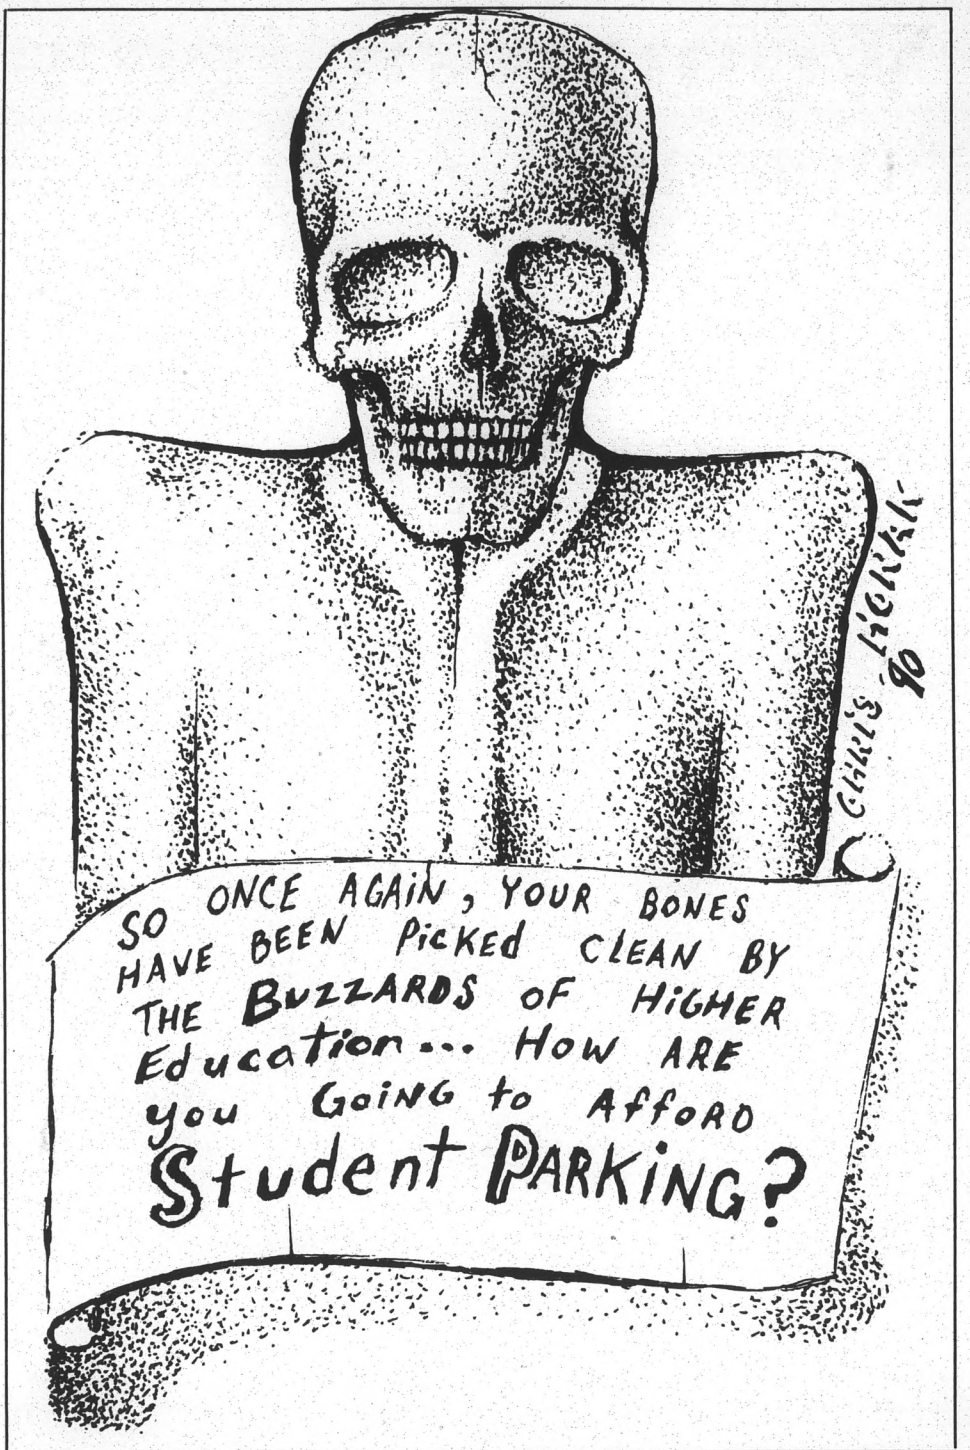 SO ONCE AGAiN, YOUR BONES
HAVE BEEN PicKEd ClEAN BY
THE BUZZARDS OF HiGHER
Education... How ARE
you GoiNG to AffORD
Student PARKiNG?
Chris
90